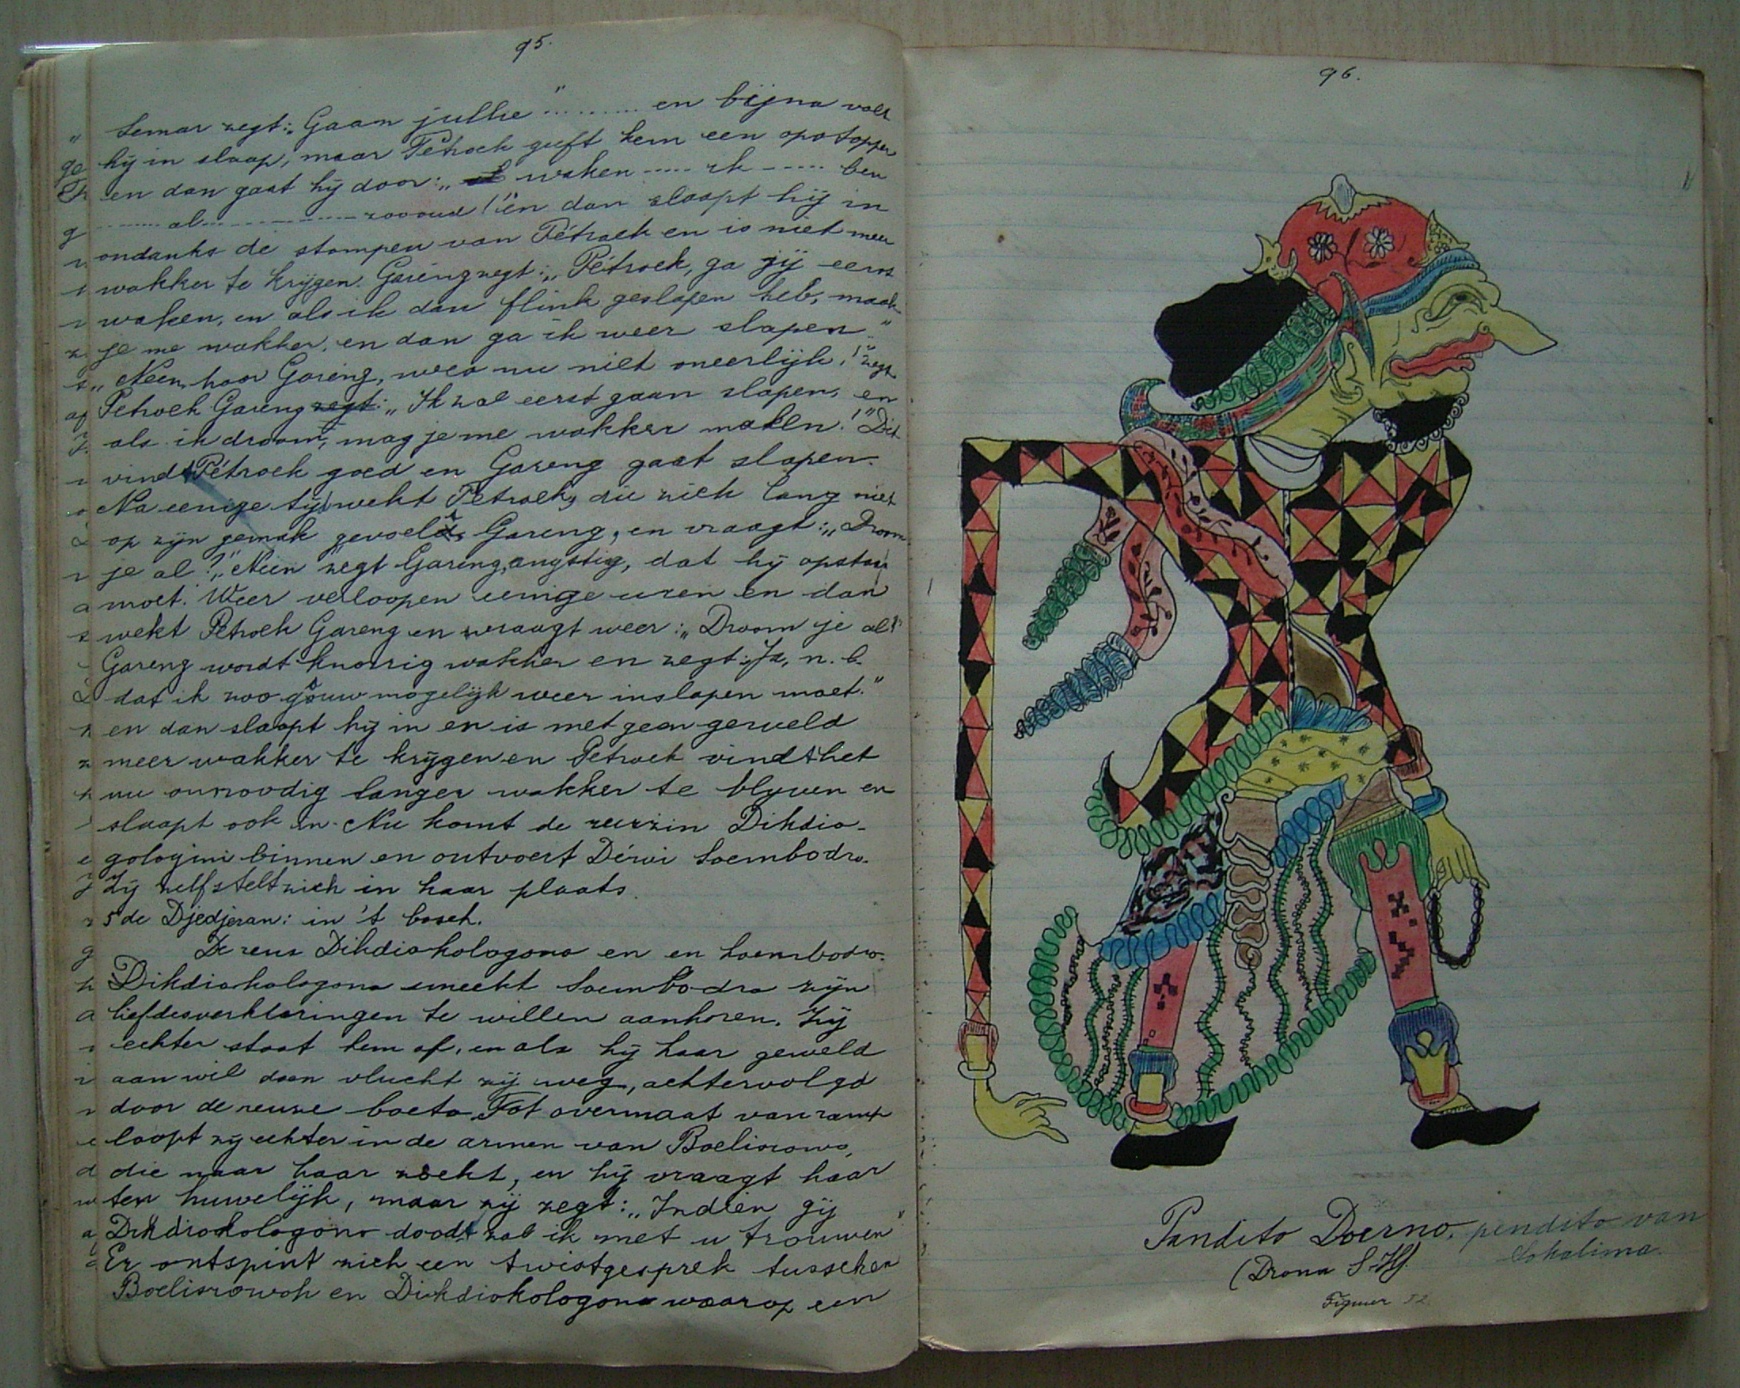 95.
Semar zegt: „Gaan jullie ......... en bijna valt
hij in slaap, maar Pétroek geeft hem een opstopper
en dan gaat hij door: „ waken ..... ik ..... ben
...... al ............ zoooud!" en dan slaapt hij in
ondanks de stompen van Pétroek en is niet meer
wakker te krijgen. Garéng zegt: „Pétroek, ga jij eerst
waken, en als ik dan flink geslapen heb, maak
je me wakker, en dan ga ik weer slapen."
„Neen hoor Garéng, wees nu niet oneerlijk!" zegt
Petroek Gareng zegt: „Ik zal eerst gaan slapen, en
als ik droom, mag je me wakker maken!" Dit
vindt Pétroek goed en Gareng gaat slapen.
Na eenige tijd wekt Pétroek, die zich lang niet
op zijn gemak gevoeld, Gareng, en vraagt: „Droom
je al?" „Neen" zegt Gareng, angstig, dat hij opstaan
moet. Weer verloopen eenige uren en dan
wekt Petroek Gareng en vraagt weer: „Droom je al?"
Gareng wordt knorrig wakker en zegt: „Ja, n.b.
dat ik zoo gouw mogelijk weer inslapen moet."
en dan slaapt hij in en is met geen geweld
meer wakker te krijgen en Petroek vindt het
nu onnoodig langer wakker te blyven en
slaapt ook in. Nu komt de reuzin Dikdio-
gologini binnen en ontvoert Déwi Soembodro.
Zij zelf stelt zich in haar plaats.
5de Djedjeran: in 't bosch.
De reus Dikdiokologono en en Soembodro.
Dikdiokologono smeekt Soembodro zijn
liefdesverklaringen te willen aanhoren. Zij
echter stoot hem af, en als hij haar geweld
aan wil doen vlucht zij weg, achtervolgd
door de reuze boeto. Tot overmaat van ramp
loopt zij echter in de armen van Boelisrowo,
die naar haar zoekt, en hij vraagt haar
ten huwelijk, maar zij zegt: „Indien gij
Dikdiokologono doodt zal ik met u trouwen"
Er ontspint zich een twistgesprek tusschen
Boelisrowoh en Dikdiokologono waarop een
96.
Pandito Doerno. pendito van
Sokalima.
(Drona S.H.)
Figuur 52